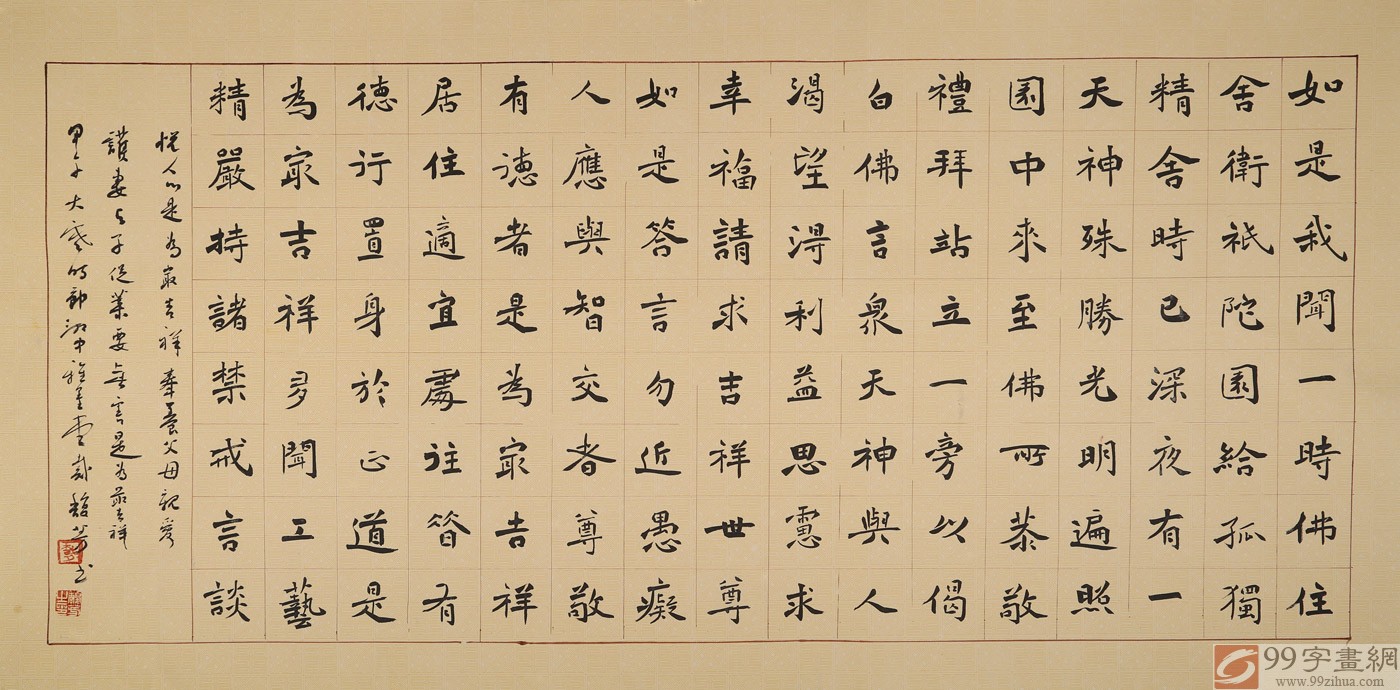 如是我聞一時佛住
舍衛祇陀園給孤獨
精舍時已深夜有一
天神殊勝光明遍照
園中來至佛所恭敬
禮拜站立一旁以偈
白佛言眾天神與人
渴望得利益思慮求
幸福請求吉祥世尊
如是答言勿近愚癡
人應與智交者尊敬
有德者是為最吉祥
居住適宜處往昔有
德行置身於正道是
為最吉祥多聞工藝
精嚴持諸禁戒言談
悅人心是為最吉祥奉養父母親愛
護妻与子從業要無害是為最吉祥
甲午大寒時節
99字畫網
www.99zihua.com